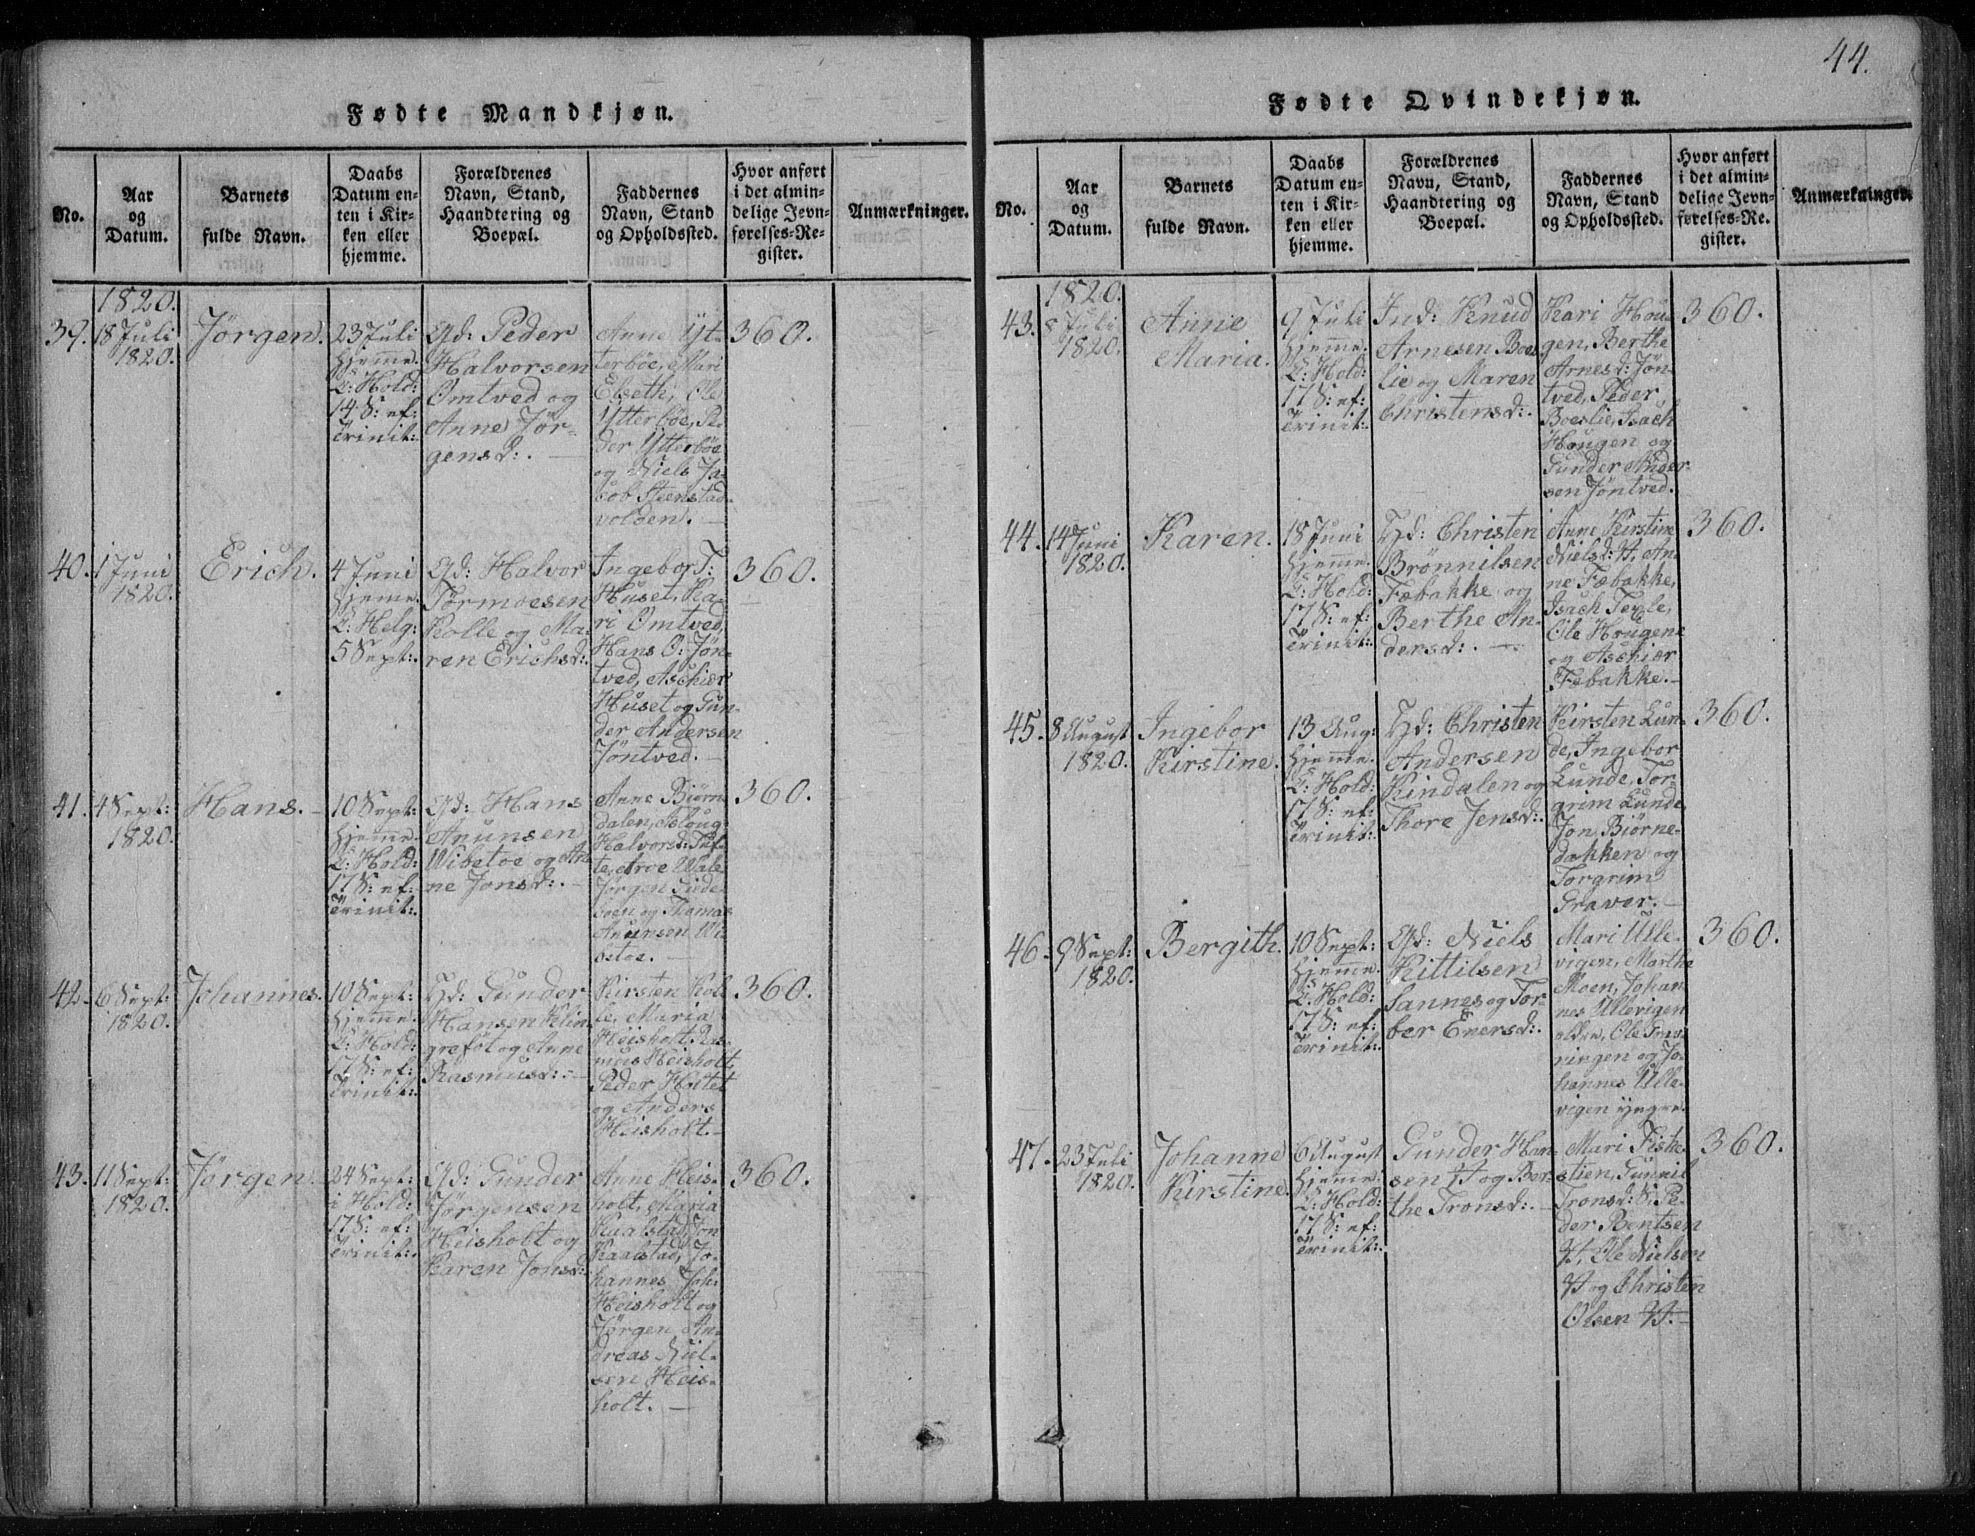 Fødte Mandkjøn.
No.
Aar
og
Datum.
Barnets
fulde Navn.
Daabs
Datum en-
ten i Kir-
ken eller
hjemme.
Forældrenes
Navn, Stand,
Haandtering og
Boepæl.
Faddernes
Navn, Stand
og Opholdssted.
Hvor anført
i det almin-
delige Jevn-
førelses-Re-
gister.
Anmærkninger.
1820.
39.
18 Juli
1820.
Jørgen.
23 Juli
hjemme.
C: Hold:
14 S: ef:
Trinit:
Gd: Peder
Halvorsen
Omtved og
Anne Jør-
gensd:.
Anne Yt-
terbøe, Mari
Elseth, Ole
Ytterbøe, Pe-
der Ytterbøe
og Niels Ja-
cob Steenstad-
volden.
360.
40.
1 Juni
1820.
Erich.
4 Juni
hjeme.
C: Helg:
5 Sept:.
Gd: Halvor
Tormoesen
Kolle og Ma-
ren Erichsd:.
Ingebor T:
Huset, Ka-
ri Omtved,
Hans O: Jøn-
tved, Aschier
Huset og Gun-
der Andersen
Jøntved.
360.
41.
4 Sept:
1820.
Hans.
10 Sept:
hjemme.
C: Hold:
17 S: ef:
Trinit:.
Gd: Hans
Anunsen
Wibetoe og An-
ne Jonsd:.
Anne Biørn-
dalen, Asloug
Halvorsd: Tuf-
te, Aroe Wale
Jørgen
boen og Thomas
Anunsen Wi-
betoe.
360.
42.
6 Sept:
1820.
Johannes.
10 Sept:
hjemme.
C: Hold:
17 S: ef:
Trinit:.
Hd: Gunder
Hansen Felin-
greføt og Anne
Rasmusd:.
Kirsten Kol-
le, Maria
Heisholt, Ras-
mus Heisholt,
Peder Holtet
og Anders
Heisholt.
360.
43.
11 Sept:
1820.
Jørgen.
24 Sept:
i Hold:
17 S: ef:
Trinit:.
Gd: Gunder
Jørgensen
Heisholt og
Karen Jonsd:
Anne Heis-
holt, Maria
Kaalstad, Jon
Kaalstad, Jo-
hannes Joh:
Heisholt og
Jørgen An-
dreas Niel-
sen Heis-
holt.
360.
44.
Fødte Qvindekjøn.
No.
Aar
og
Datum.
Barnets
fulde Navn.
Daabs
Datum en-
ten i Kir-
ken eller
hjemme.
Forældrenes
Navn, Stand,
Haandtering og
Boepæl.
Faddernes
Navn, Stand
og Opholdssted.
Hvor anført
i det almin-
delige Jevn-
førelses-Re-
gister.
Anmærkninger.
1820.
43.
8 Juli
1820.
Anne
Maria.
9 Juli
hjemme.
C: Hold:
17 S: ef:
Trinit:
Ind: Knud
Arnesen Boes-
lie og Maren
Christensd:.
Kari Hou-
gen, Berthe
Arnesd: Jøn-
tved, Peder
Boeslie, Isach
Hougen og
Gunder Ander-
sen Jøntved.
360.
44.
14 Juni
1820.
Karen.
18 Juni
hjemme.
C: Hold:
17 S: ef:
Trinit:.
Hd: Christen
Brønnilsen
Fæbakke og
Berthe An-
dersd:.
Anne Kirstine
Nielsd: H, An-
ne Fæbakke,
Isach Teyle,
Ole Hougene
og Aschier
Fæbakke.
360.
45.
8 August
1820.
Ingebor
Kirstine.
13 Aug:
hjemme.
C: Hold:
17 S: ef:
Trinit:.
Hd: Christen
Andersen
Kindalen og
Thore Jensd:.
Kirsten Lun-
de, Ingebor
Lunde, Tor-
grim Lunde,
Jon Biørne-
dokken og
Torgrim
Graver.
360.
46.
9 Sept:
1820.
Bergith.
10 Sept:
hjemme.
C: Hold:
17 S: ef:
Trinit:.
Gd: Niels
Kittilsen
Sannes og Tor-
bor Enersd:.
Mari Ulle-
vigen, Marthe
Moen, Johan-
nes Ullevigen
eldre, Ole Grav-
ringen og Jo-
hannes Ulle-
vigen yngre.
360.
47.
23 Juli
1820.
Johanne
Kirstine.
6 August
hjemme.
C: Hold:
17 S: ef:
Trinit:.
Gunder Han-
sen H og Ber-
the Tronsd:.
Mari Fiske-
stien, Gunnil
Tronsd: S, Pe-
der Bentsen
H, Ole Nielsen
H og Christen
Olsen H.
360.